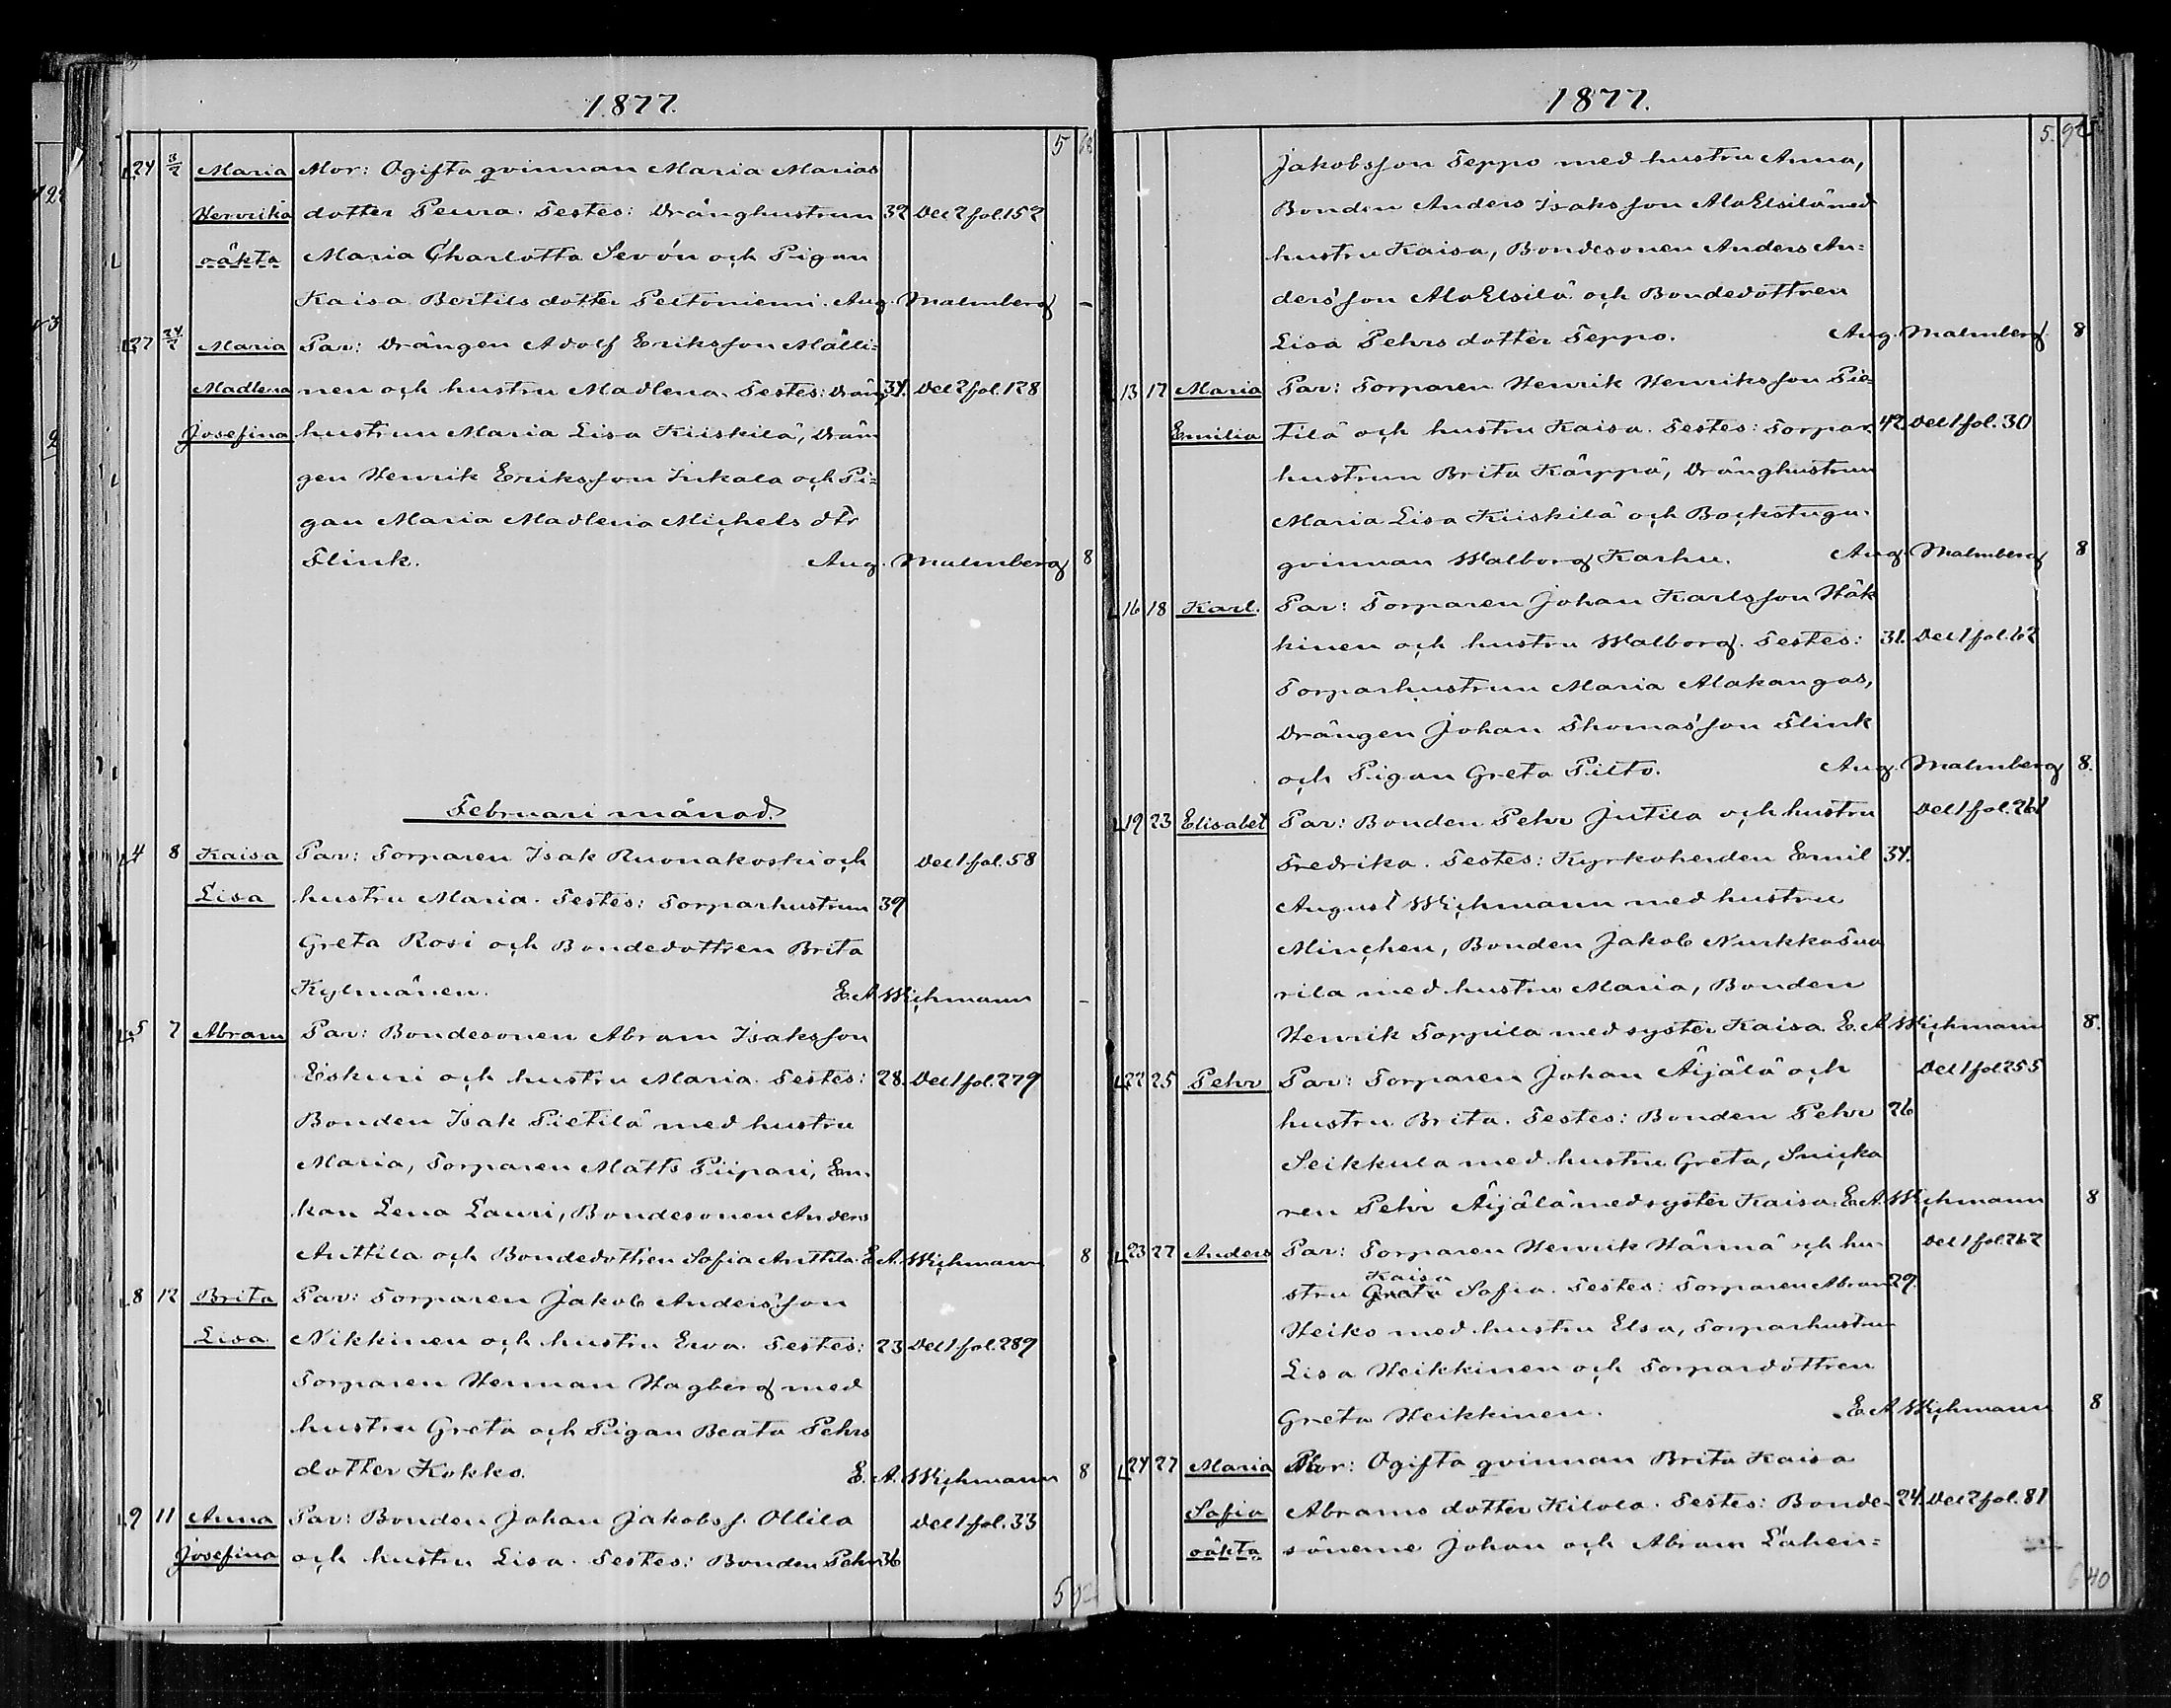 1877.
5 68
24 3/2 Maria Mor: Ogifta qvinnan Maria Marias
Henrika dotter Peura. Testes: Dränghustrun 32 Del 2 fol. 152
oäkta Maria Charlotta Sevón och Pigan
Kaisa Bertils dotter Peltoniemi. Aug. Malmberg –
27 24/2 Maria Par: Drängen Adolf Eriksson Mälli=
Madlena nen och hustru Madlena. Testes: Dräng 34. Del 2 fol. 128
Josefina hustrun Maria Lisa Kiiskilä, Drän
gen Henrik Eriksson Inkala och Pi=
gan Maria Madlena Michels dtr
Flink. Aug. Malmberg 8
Februari månad.
4 8 Kaisa Par: Torparen Isak Ruonakoski och Del 1 fol. 58
Lisa hustru Maria. Testes: Torparhustrun 39
Greta Rosi och Bondedottren Brita
Kylmänen. E. A. Wichmann –
5 7 Abram Par: Bondesonen Abram Isaksson
Eskuri och hustru Maria. Testes: 28. Del 1 fol. 279
Bonden Isak Pietilä med hustru
Maria, Torparen Matts Piipari, En=
kan Lena Lauri, Bondesonen Anders
Anttila och Bondedottren Sofia Anttila. E. A. Wichmann 8
8 12 Brita Par: Torparen Jakob Andersson
Lisa Nikkinen och hustru Ewa. Testes: 23 Del 1 fol. 289
Torparen Herman Hagberg med
hustru Greta och Pigan Beata Pehrs
dotter Kokko. E. A. Wichmann 8
9 11 Anna Par: Bonden Johan Jakobs s. Ollila Del 1 fol. 33
Josefina och hustru Lisa. Testes: Bonden Pehr 36
5 92
1877.
5. 92
Jakobsson Teppo med hustru Anna,
Bonden Anders Isaksson AlaElsilä med
hustru Kaisa, Bondesonen Anders An=
dersson AlaElsilä och Bondedottren
Lisa Pehrs dotter Teppo. Aug. Malmberg 8
13 17 Maria Par: Torparen Henrik Henriksson Pie=
Emilia tilä och hustru Kaisa. Testes: Torpar 42 Del 1 fol. 30
hustrun Brita Kärppä, Dränghustrun
Maria Lisa Kiiskilä och Backstugu-
qvinnan Walborg Karhu. Aug. Malmberg 8
16 18 Karl. Par: Torparen Johan Karlsson Häk
kinen och hustru Walborg. Testes: 31. Del 1 fol. 62
Torparhustrun Maria Alakangas,
Drängen Johan Thomasson Flink
och Pigan Greta Pilto. Aug. Malmberg 8.
19 23 Elisabet Par: Bonden Pehr Jutila och hustru Del 1 fol. 261
Fredrika. Testes: Kyrkoherden Emil 34.
August Wichmann med hustru
Minchen, Bonden Jakob NurkkaSaa
rila med hustru Maria, Bonden
Henrik Toppila med syster Kaisa E. A. Wichmann 8.
22 25 Pehr Par: Torparen Johan Äijälä och Del 1 fol. 255
hustru Brita. Testes: Bonden Pehr 26
Seikkula med hustru Greta, Snicka
ren Pehr Äijälä med syster Kaisa. E. A. Wichmann 8
23 27 Anders Par: Torparen Henrik Hännä och hu- Del 1 fol. 262
Kaisa
stru Greta Sofia. Testes: Torparen Abram 29.
Heiko med hustru Elsa, Torparhustrun
Lisa Heikkinen och Torpardottren
Greta Heikkinen. E. A. Wichmann 8
24 27 Maria Mor: Ogifta qvinnan Brita Kaisa
Sofia Abrams dotter Kilola. Testes: Bonde- 24. Del 2 fol. 81
oäkta sönerne Johan och Abram Lahen=
6 40